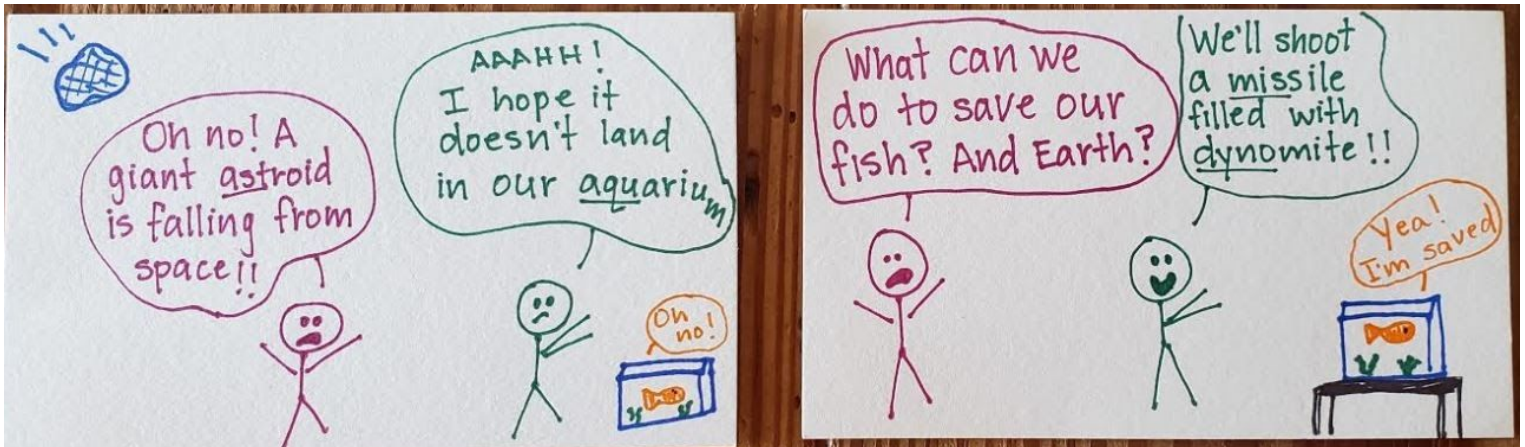 Oh no! A
giant astroid
is falling from
space!!
AAAHH!
I hope it
doesn't land
in our aquarium
Oh
no!
What can we
do to save our
fish? And Earth?
We'll shoot
a missile
filled with
dynomite!!
Yea!
I'm saved